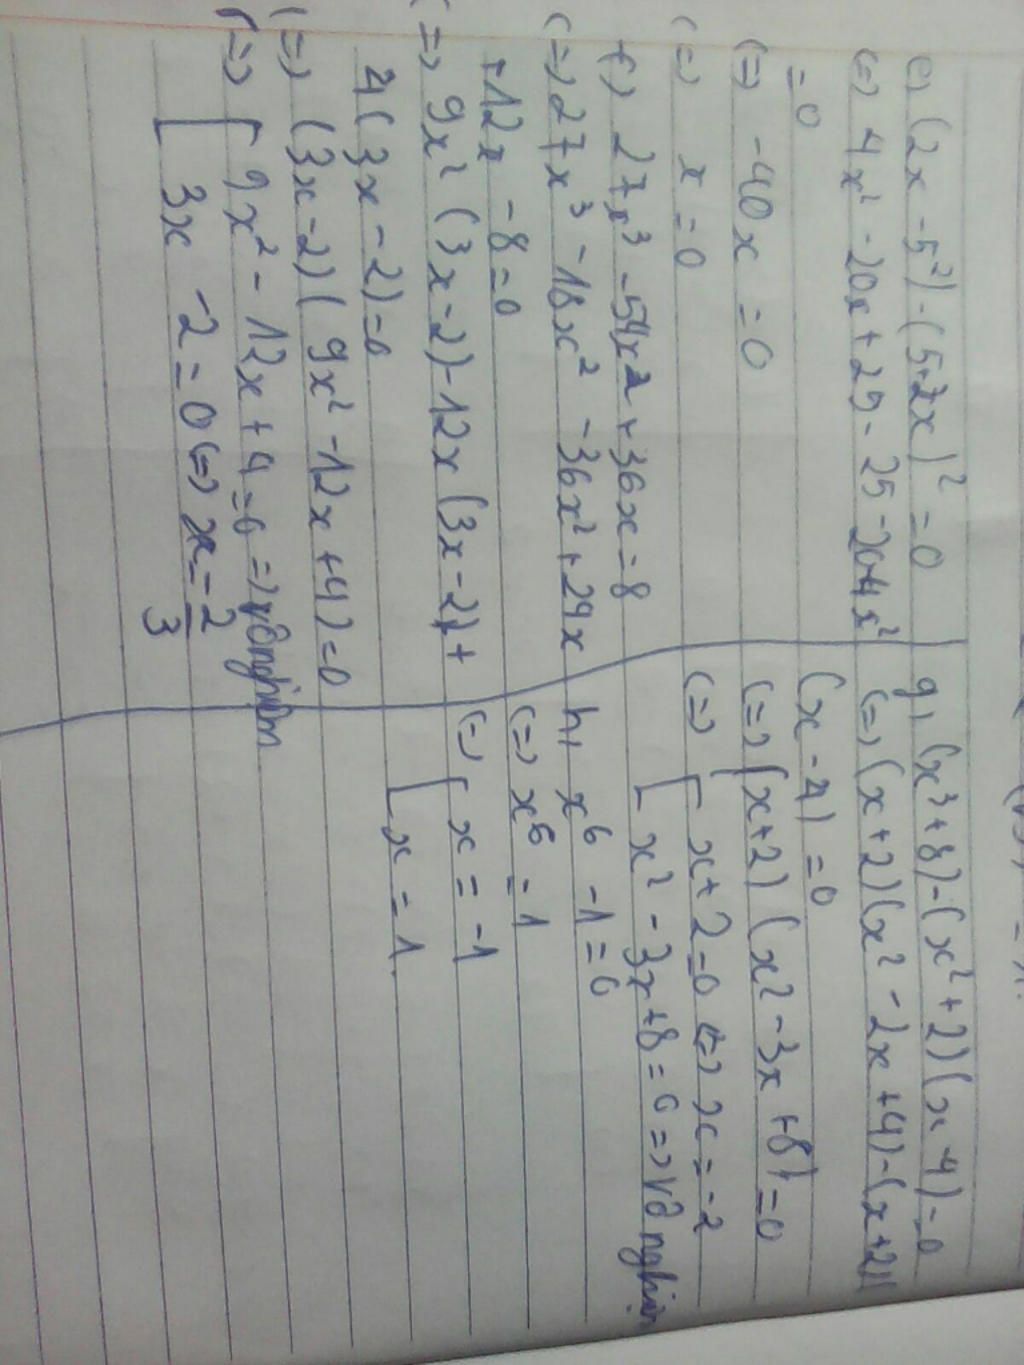 e, (2x - 5²) - (5+2x)² = 0
(=) 4x² - 20x + 25 - 25 - 20-4x²
= 0
(=) -40x = 0
(=) x = 0
f, 27x³ - 54x2 + 36x = 8
(=) 27x³ - 18x² - 36x² + 24x
+12x - 8 = 0
(=) 9x² (3x - 2) - 12x (3x - 2) +
4(3x - 2) = 0
(=) (3x - 2) ( 9x² - 12x + 4) = 0
(=) [ 9x² - 12x + 4 = 0 => vô nghiệm
3x - 2 = 0 (=) x = 2/3
g, (x³ + 8) - (x² + 2) (x - 4) = 0
(=) (x + 2) (x² - 2x + 4) - (x + 2)
(x - 4) = 0
(=) (x + 2) (x² - 3x + 8) = 0
(=) [ x + 2 = 0 (=) x = -2
x² - 3x + 8 = 0 => Vô nghiệm
h, x⁶ - 1 = 0
(=) x⁶ = 1
(=) [ x = -1
x = 1